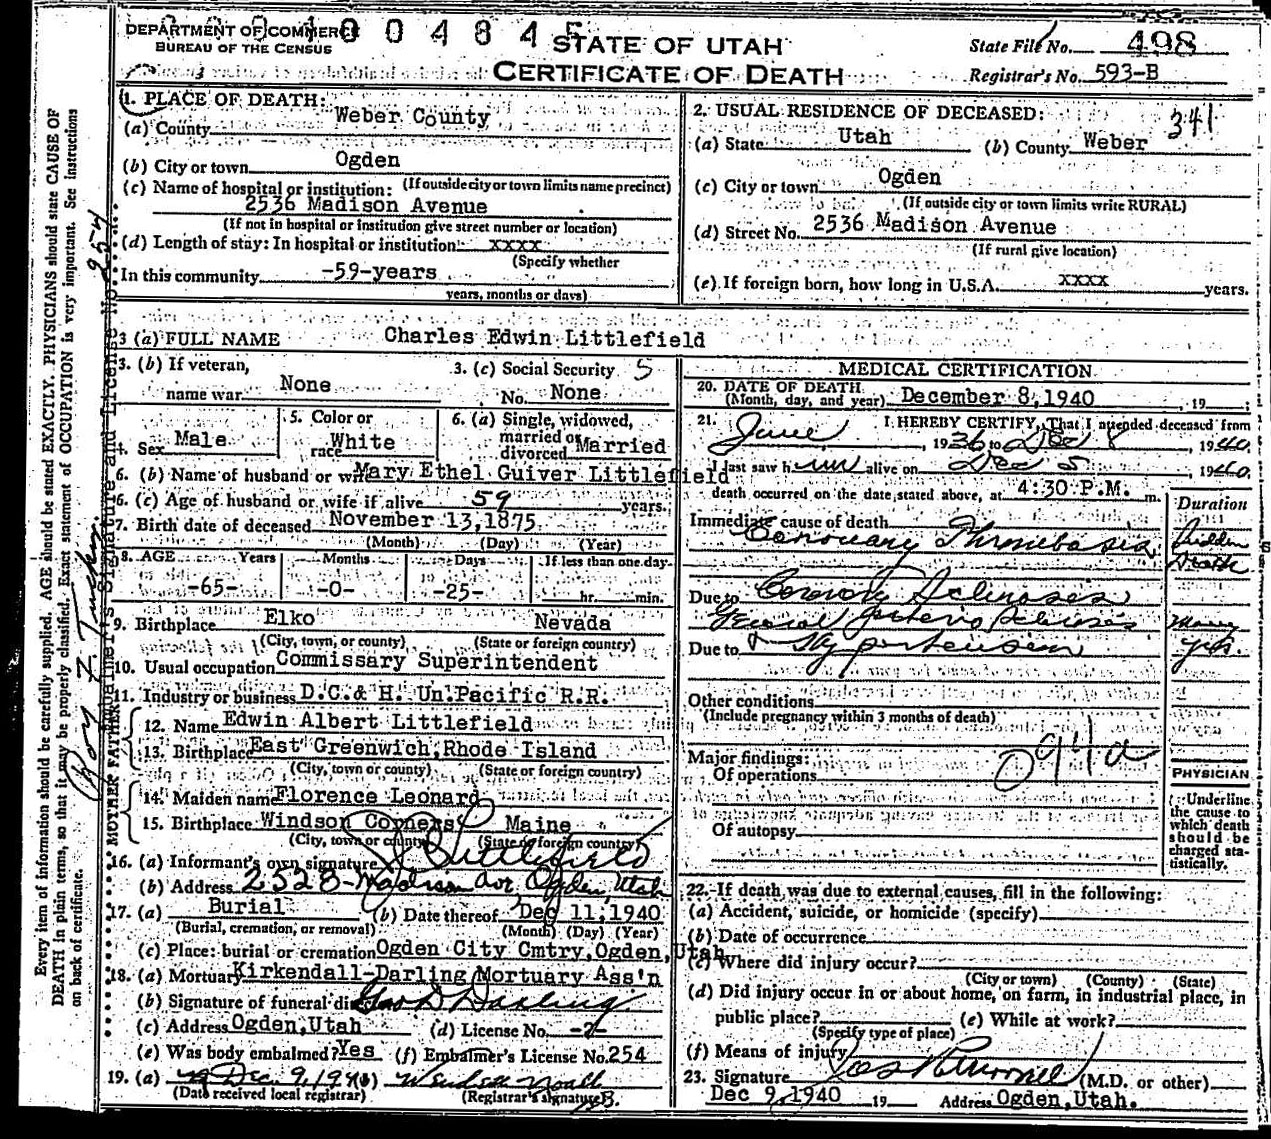 DEPARTMENT OF COMMERCE
BUREAU OF THE CENSUS
1004845
STATE OF UTAH
CERTIFICATE OF DEATH
State File No. 498
Registrar's No. 593-B
1. PLACE OF DEATH:
(a) County Weber County
(b) City or town Ogden
(If outside city or town limits name precinct)
(c) Name of hospital or institution:
2536 Madison Avenue
(If not in hospital or institution give street number or location)
(d) Length of stay: In hospital or institution xxxx
(Specify whether
In this community -59-years
years, months or days)
2. USUAL RESIDENCE OF DECEASED: 341
(a) State Utah (b) County Weber
(c) City or town Ogden
(If outside city or town limits write RURAL)
(d) Street No. 2536 Madison Avenue
(If rural give location)
(e) If foreign born, how long in U.S.A. xxxx years.
3 (a) FULL NAME Charles Edwin Littlefield
3. (b) If veteran, name war None
3. (c) Social Security No. None 5
4. Sex Male
5. Color or race White
6. (a) Single, widowed, married or divorced Married
6. (b) Name of husband or wife Mary Ethel Guiver Littlefield
6. (c) Age of husband or wife if alive 59 years.
7. Birth date of deceased November 13,1875
(Month) (Day) (Year)
8. AGE Years Months Days If less than one day
-65- -0- -25- hr. min.
9. Birthplace Elko Nevada
(City, town, or county) (State or foreign country)
10. Usual occupation Commissary Superintendent
11. Industry or business D.C.& H. Un.Pacific R.R.
FATHER
12. Name Edwin Albert Littlefield
13. Birthplace East Greenwich,Rhode Island
(City, town or county) (State or foreign country)
MOTHER
14. Maiden name Florence Leonard
15. Birthplace Windson Corners Maine
(City, town or county) (State or foreign country)
16. (a) Informant's own signature Littlefield
(b) Address 2528-Madison Ave Ogden, Utah
17. (a) Burial (b) Date thereof Dec 11,1940
(Burial, cremation, or removal) (Month) (Day) (Year)
(c) Place: burial or cremation Ogden City Cmtry,Ogden,Utah
18. (a) Mortuary Kirkendall-Darling Mortuary Ass'n
(b) Signature of funeral director Geo D Darling
(c) Address Ogden,Utah (d) License No. -2-
(e) Was body embalmed? Yes (f) Embalmer's License No. 254
19. (a) Dec. 9,1940 (b)
(Date received local registrar) (Registrar's signature)
MEDICAL CERTIFICATION
20. DATE OF DEATH
(Month, day, and year) December 8,1940, 19
21. I HEREBY CERTIFY, That I attended deceased from
June, 1936 to Dec 8, 1940.
I last saw him alive on Dec 5, 1940.
death occurred on the date stated above, at 4:30 P.M. m.
Duration
Immediate cause of death
Coronary Thrombosis Sudden Death
Due to Coronary Sclerosis
General Arterio Sclerosis Many
Due to & Hypertension yrs.
Other conditions
(Include pregnancy within 3 months of death)
Major findings: 094a
Of operations
Of autopsy
PHYSICIAN
Underline the cause to which death should be charged statistically.
22. If death was due to external causes, fill in the following:
(a) Accident, suicide, or homicide (specify)
(b) Date of occurrence
(c) Where did injury occur?
(City or town) (County) (State)
(d) Did injury occur in or about home, on farm, in industrial place, in
public place? (e) While at work?
(Specify type of place)
(f) Means of injury
23. Signature (M.D. or other)
Dec 9,1940 19 Address Ogden,Utah.
Every item of information should be carefully supplied. AGE should be stated EXACTLY. PHYSICIANS should state CAUSE OF
DEATH in plain terms, so that it may be properly classified. Exact statement of OCCUPATION is very important. See instructions
on back of certificate.
Embalmer's Signature and License No. 254